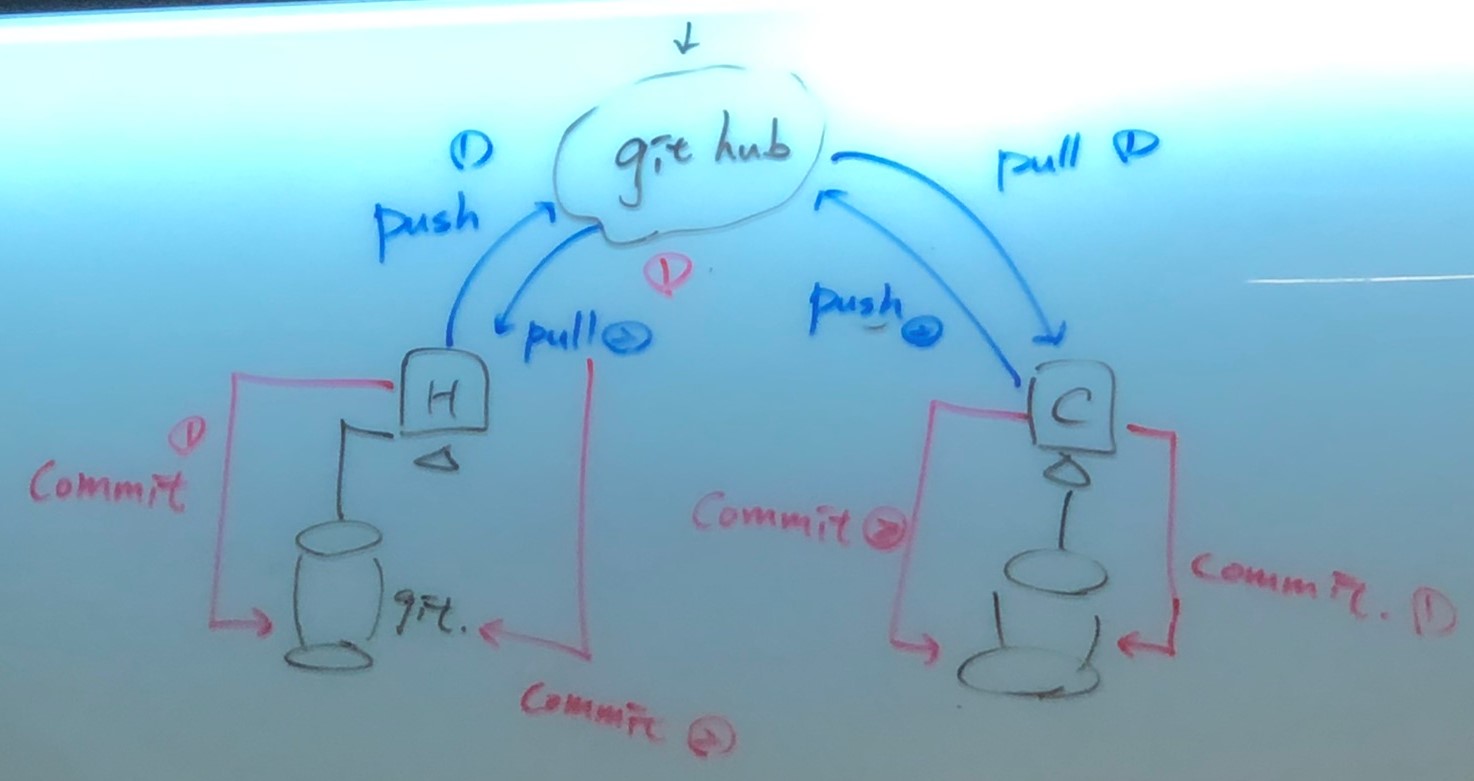 git hub
①
push
pull ①
①
pull ②
push ②
H
C
①
Commit
Commit ②
Commit. ①
git.
Commit ②